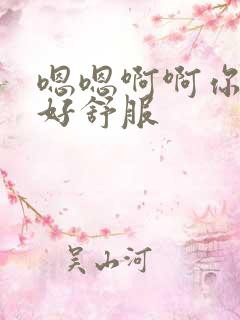 嗯嗯啊啊你
好舒服
吴山河